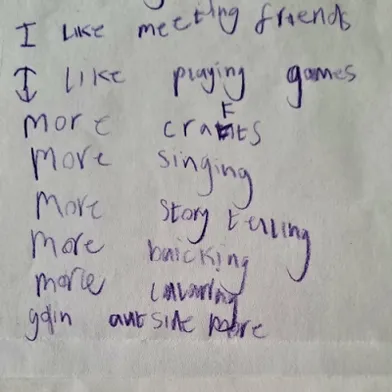 I like meeting friends
I like playing games
more crafts
more singing
more story telling
more
more
goin outside more